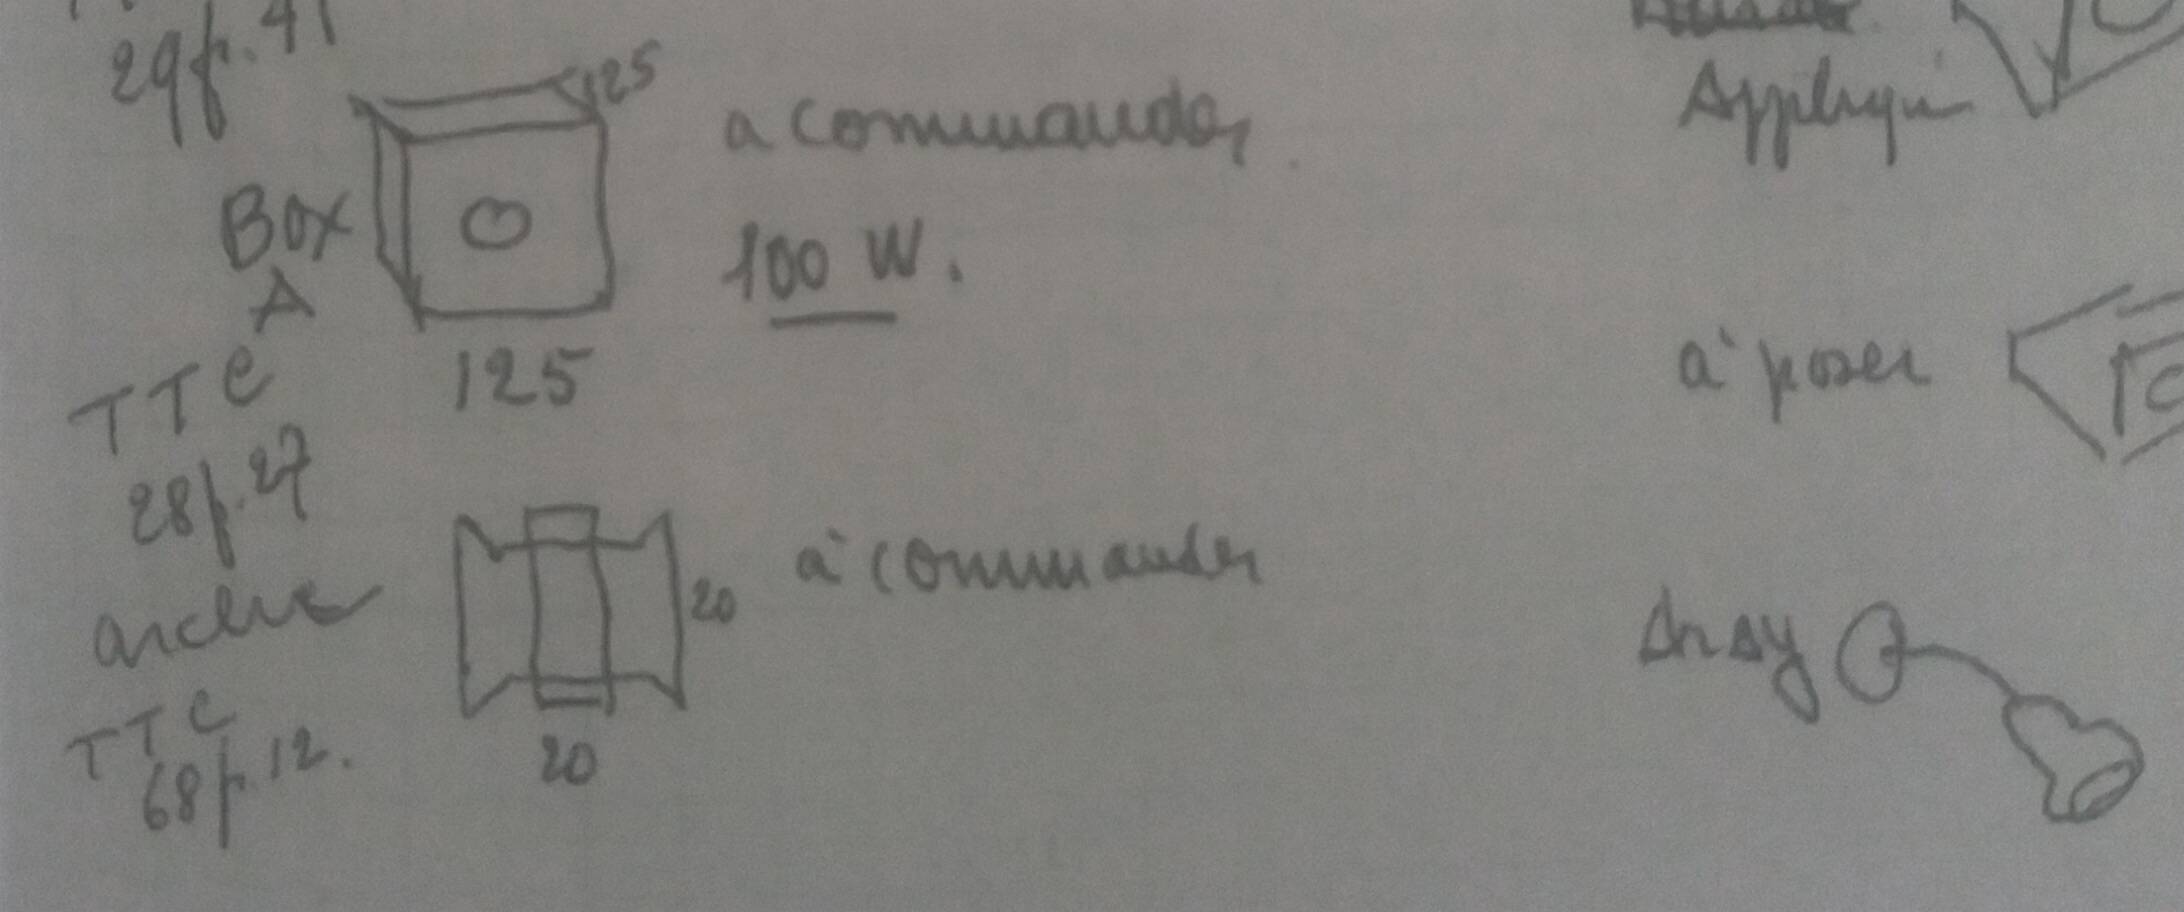 29f.41
125
a commander
Box
A
100 W.
TTC
125
28f.27
à commander
20
TTC
20
68f.12.
Appliqu
à poser